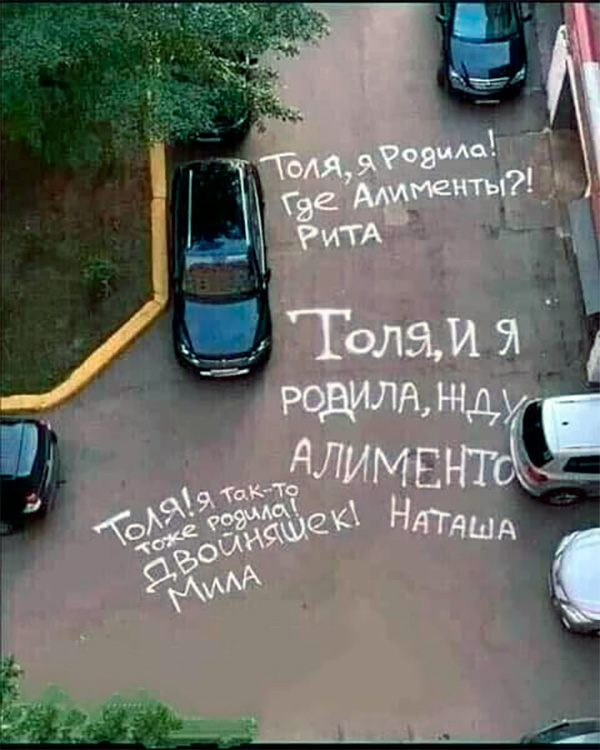 Толя, я Родила!
Где Алименты?!
Рита
Толя, и я
родила, жду
алименто
Наташа
Толя! я так-то
тоже родила!
Двойняшек!
Мила